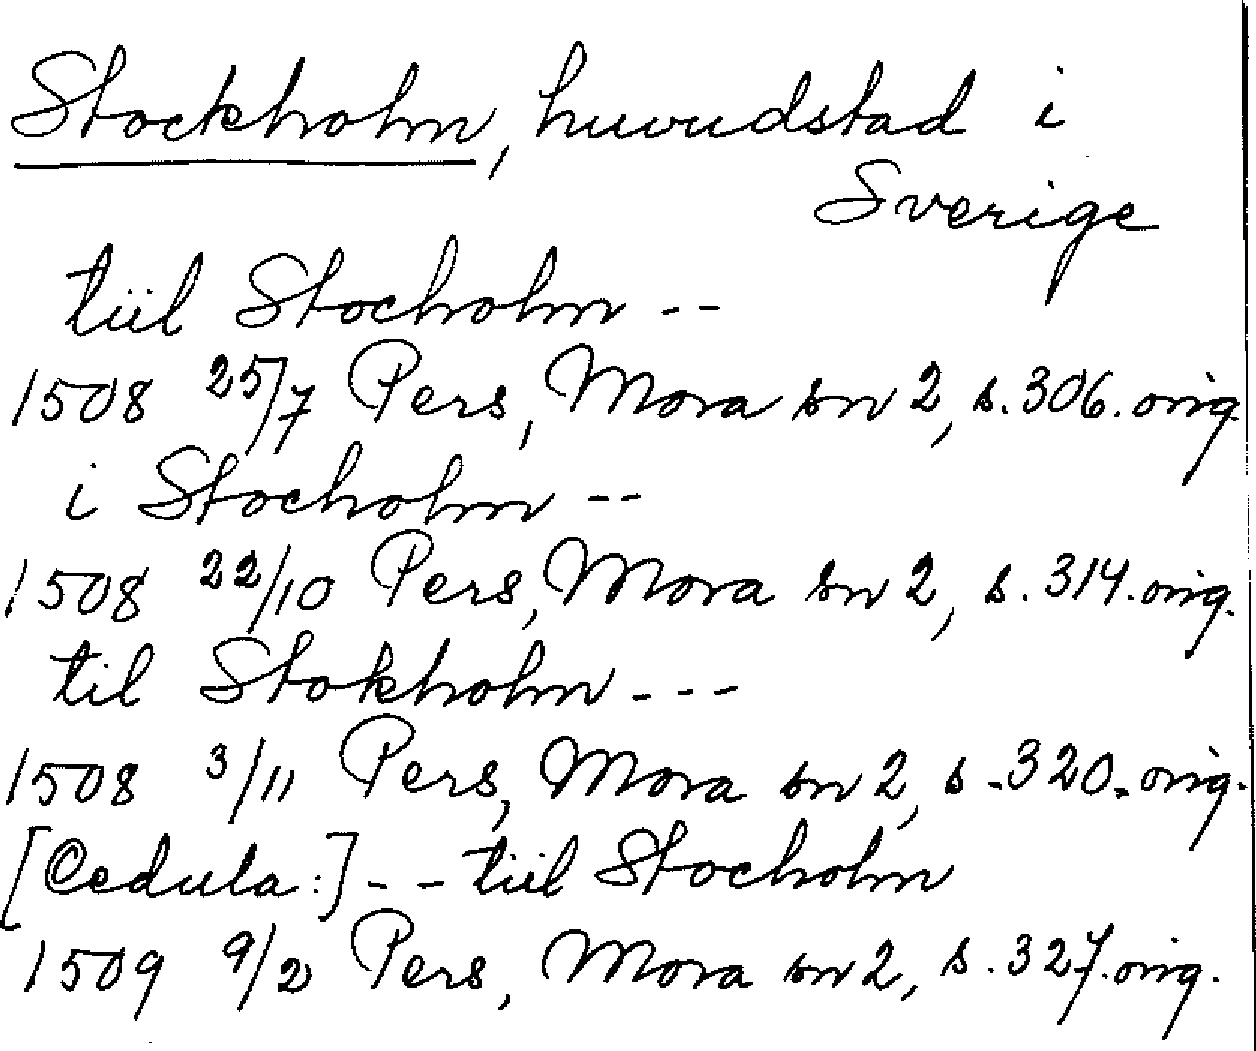 Stockholm, huvudstad i
Sverige
tiil Stocholm --
1508 25/7 Pers, Mora sn 2, s. 306. orig.
i Stocholm --
1508 22/10 Pers, Mora sn 2, s. 314. orig.
til Stokholm ---
1508 3/11 Pers, Mora sn 2, s. 320. orig.
[Cedula:] -- tiil Stocholm
1509 9/2 Pers, Mora sn 2, s. 327. orig.